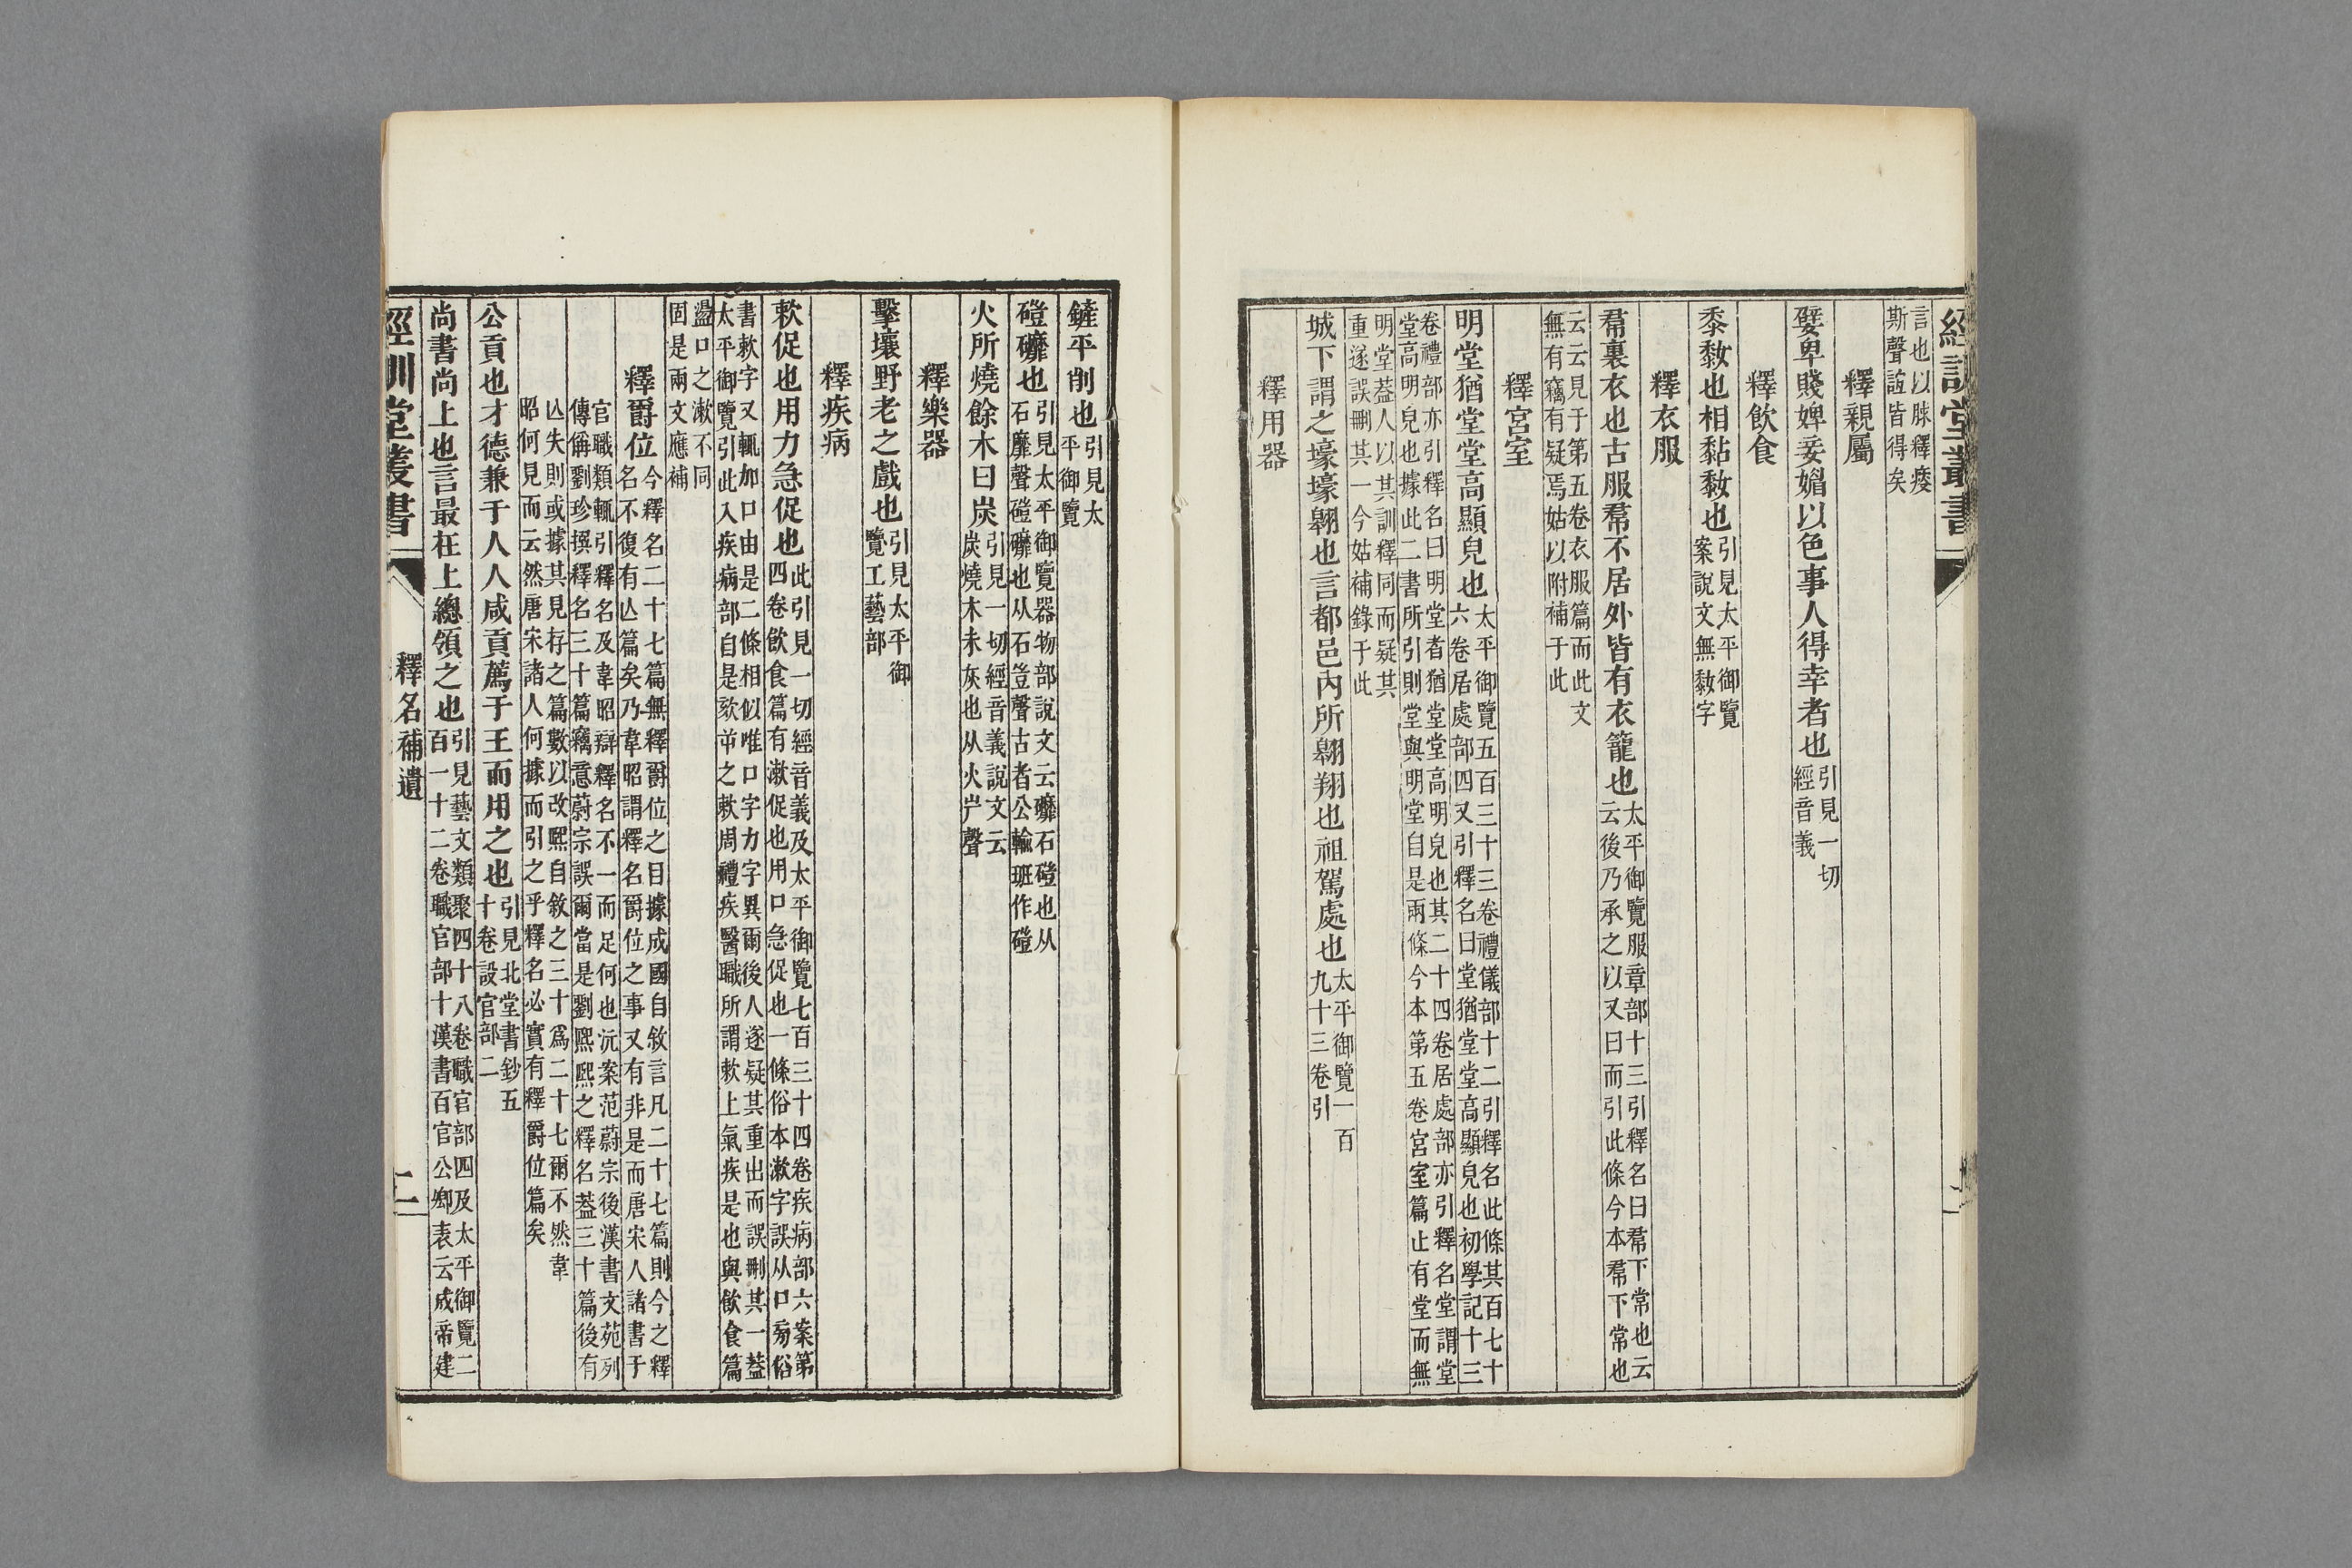 經訓堂叢書
言也以脒釋痠
斯聲誼皆得矣
釋親屬
嬖卑賤婢妾媚以色事人得幸者也引見一切
經音義
釋飲食
黍黏也相黏敎也引見太平御覽
案說文無敎字
釋衣服
帬裏衣也古服帬不居外皆有衣籠也太平御覽服章部十三引釋名曰帬下常也云
云後乃承之以又曰而引此條今本帬下常也
云云見于第五卷衣服篇而此文
無有竊有疑焉姑以附補于此
釋宮室
明堂猶堂堂高顯皃也太平御覽五百三十三卷禮儀部十二引釋名此條其百七十
六卷居處部四又引釋名曰堂猶堂堂高顯皃也初學記十三
卷禮部亦引釋名曰明堂者猶堂堂高明皃也其二十四卷居處部亦引釋名堂謂堂
堂高明皃也據此二書所引則堂與明堂自是兩條今本第五卷宮室篇止有堂而無
明堂葢人以其訓釋同而疑其
重遂誤刪其一今姑補錄于此
城下謂之壕壕翱也言都邑內所翱翔也祖駕處也太平御覽一百
九十三卷引
釋用器
鏟平削也引見太
平御覽
磑䃺也引見太平御覽器物部說文云䃺石磑也从
石靡聲磑䃺也从石豈聲古者公輸班作磑
火所燒餘木曰炭引見一切經音義說文云
炭燒木未灰也从火屵聲
釋樂器
擊壤野老之戲也引見太平御
覽工藝部
釋疾病
欶促也用力急促也此引見一切經音義及太平御覽七百三十四卷疾病部六案第
四卷飲食篇有漱促也用口急促也一條俗本漱字誤从口㫄俗
書欶字又輒加口由是二條相似唯口字力字異爾後人遂疑其重出而誤刪其一葢
太平御覽引此入疾病部自是欬㡿之欶周禮疾醫職所謂欶上氣疾是也與飲食篇
盪口之漱不同
固是兩文應補
釋爵位今釋名二十七篇無釋爵位之目據成國自敘言凡二十七篇則今之釋
名不復有亾篇矣乃韋昭謂釋名爵位之事又有非是而唐宋人諸書于
官職類輒引釋名及韋昭辯釋名不一而足何也沅案范蔚宗後漢書文苑列
傳偁劉珍撰釋名三十篇竊意蔚宗誤爾當是劉熙熙之釋名葢三十篇後有
亾失則或據其見存之篇數以改熙自敘之三十爲二十七爾不然韋
昭何見而云然唐宋諸人何據而引之乎釋名必實有釋爵位篇矣
公貢也才德兼于人人咸貢薦于王而用之也引見北堂書鈔五
十卷設官部二
尚書尚上也言最在上總領之也引見藝文類聚四十八卷職官部四及太平御覽二
百一十二卷職官部十漢書百官公卿表云成帝建
經訓堂叢書
釋名補遺
二